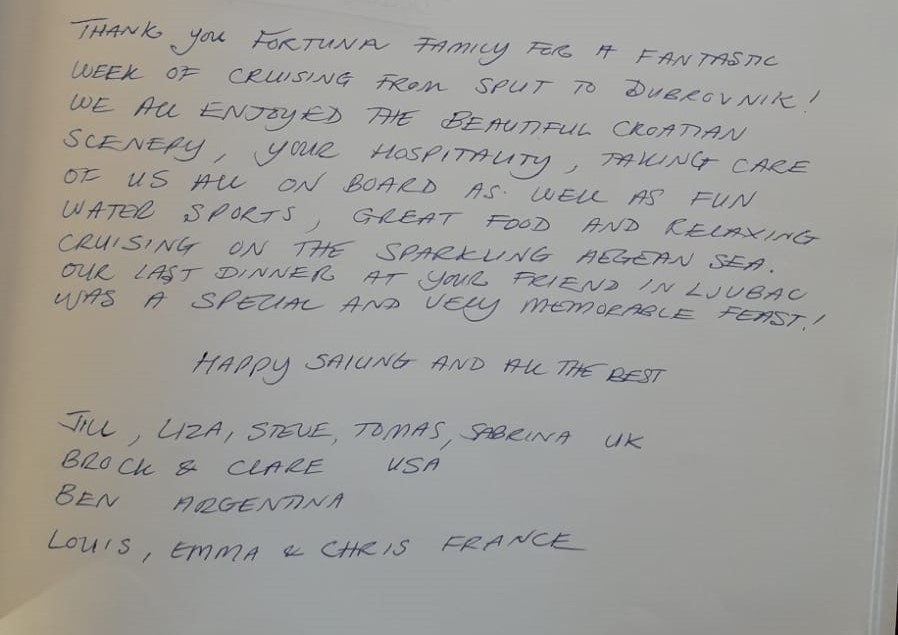 THANK YOU FORTUNA FAMILY FOR A FANTASTIC
WEEK OF CRUISING FROM SPLIT TO DUBROVNIK!
WE ALL ENJOYED THE BEAUTIFUL CROATIAN
SCENERY, YOUR HOSPITALITY, TAKING CARE
OF US ALL ON BOARD AS WELL AS FUN
WATER SPORTS, GREAT FOOD AND RELAXING
CRUISING ON THE SPARKLING AEGEAN SEA.
OUR LAST DINNER AT YOUR FRIEND IN LJUBAC
WAS A SPECIAL AND VERY MEMORABLE FEAST!
HAPPY SAILING AND ALL THE BEST
JILL, LIZA, STEVE, TOMAS, SABRINA UK
BROCK & CLARE USA
BEN ARGENTINA
LOUIS, EMMA & CHRIS FRANCE